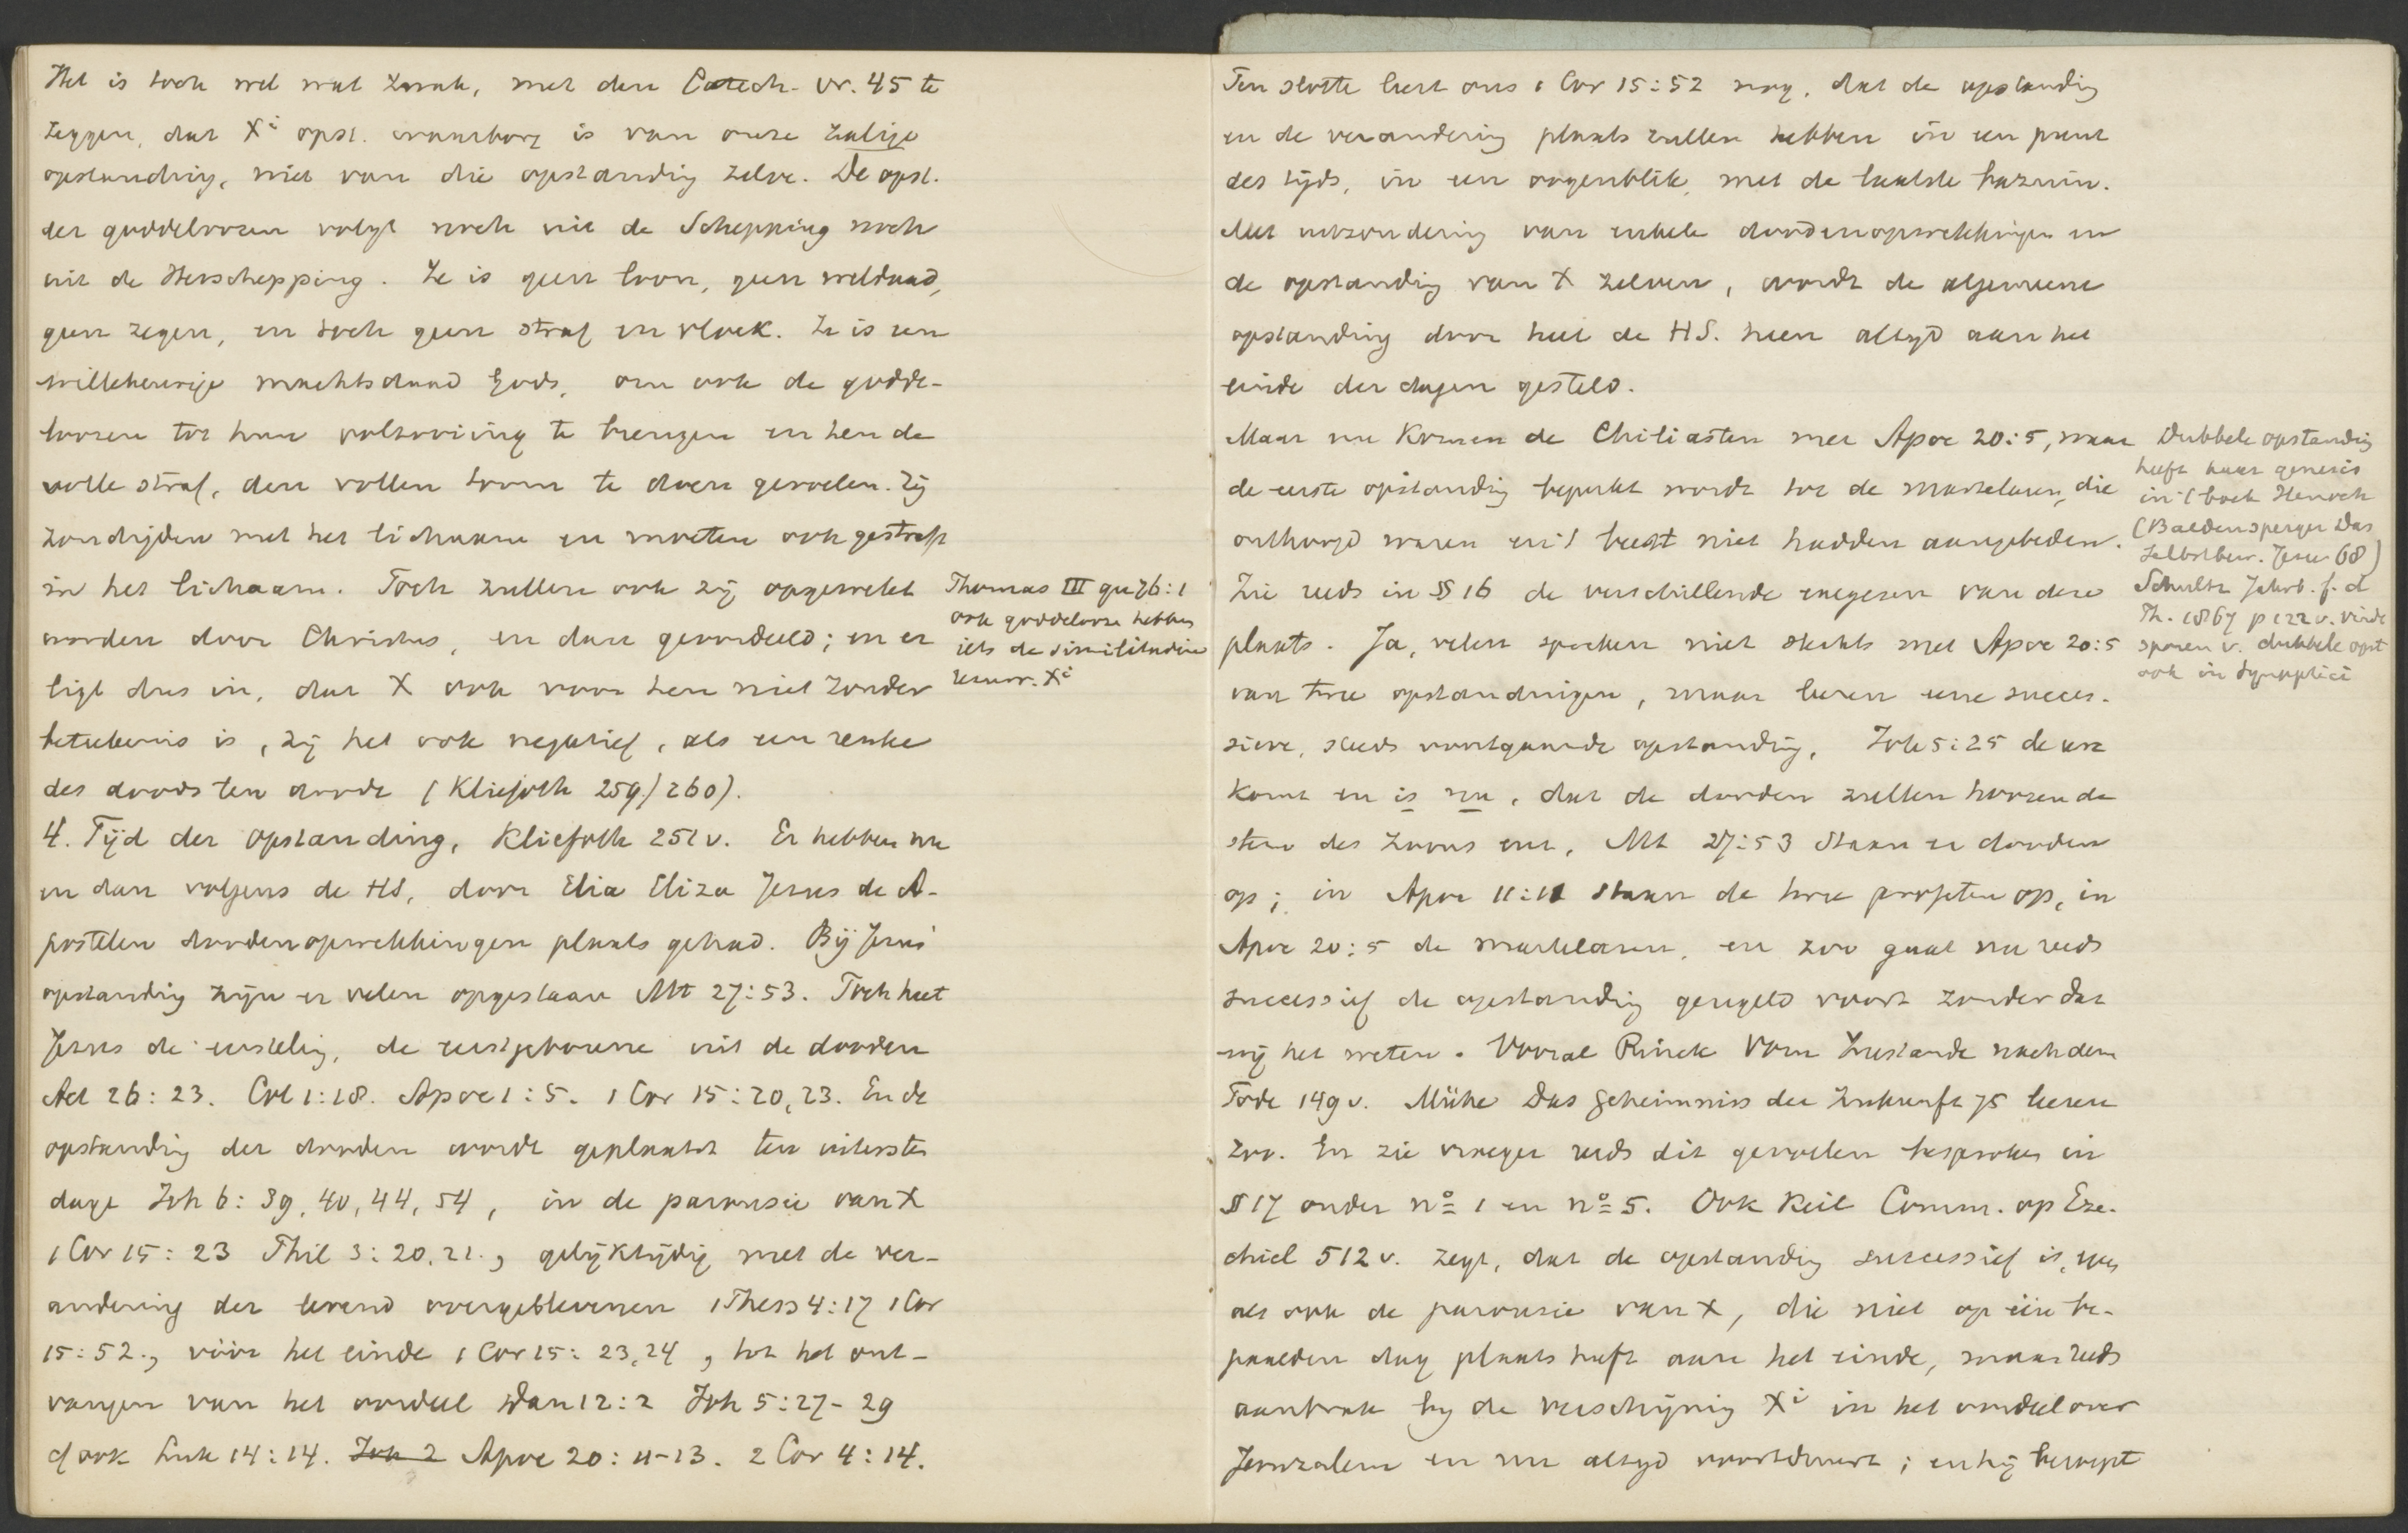 Het is toch wel wat zwak, met den Catech. vr. 45 te
zeggen, dat Xi opst. waarborg is van onze zalige
opstanding, niet van die opstanding zelve. De opst.
der goddeloozen volgt noch uit de Schepping noch
uit de Herschepping. Ze is geen loon, geen weldaad,
geen zegen, en toch geen straf en vloek. Ze is een
willekeurige machtsdaad Gods, om ook de godde-
loozen tot hun voltooiing te brengen en hen de
volle straf, den vollen toorn te doen gevoelen. Zij
zondigden met het lichaam en moeten ook gestraft
in het lichaam. Toch zullen ook zij opgewekt
worden door Christus, en dan geoordeeld; en er
ligt dus in, dat X ook voor hen niet zonder
beteekenis is, zij het ook negatief, als een reuke
des doods ten doode (Kliefoth 259/260).
Thomas III qu 76:1
ook goddelooze hebben
iets de similitudine
resurr. Xi
4. Tijd der opstanding, Kliefoth 251 v. Er hebben nu
en dan volgens de HS, door Elia Eliza Jezus de A-
postelen doodenopwekkingen plaats gehad. Bij Jezus'
opstanding zijn er velen opgestaan Mt 27:53. Toch heet
Jezus de eersteling, de eerstgeborene uit de dooden
Act 26:23. Col 1:18. Apoc 1:5. 1 Cor 15:20,23. En de
opstanding der dooden wordt geplaatst ten uitersten
dage Joh 6:39,40,44,54, in de parousie van X
1 Cor 15:23 Phil 3:20.21., gelijktijdig met de ver-
andering der levend overgeblevenen 1 Thess 4:17 1 Cor
15:52., vóór het einde 1 Cor 15:23,24, tot het ont-
vangen van het oordeel Dan 12:2 Joh 5:27-29
cf ook Luk 14:14. Joh 2 Apoc 20:11-13. 2 Cor 4:14.
Ten slotte leert ons 1 Cor 15:52 nog, dat de opstanding
en de verandering plaats zullen hebben in een punt
des tijds, in een oogenblik, met de laatste bazuin.
Met uitzondering van enkele doodenopwekkingen en
de opstanding van X zelven, wordt de algemeene
opstanding door heel de HS. heen altijd aan het
einde der dagen gesteld.
Maar nu komen de Chiliasten met Apoc 20:5, waar
de eerste opstanding beperkt wordt tot de martelaren, die
onthoofd waren en 't beest niet hadden aangebeden.
Zie reeds in § 16 de verschillende exegesen van deze
plaats. Ja, velen spreken niet slechts met Apoc 20:5
van twee opstandingen, maar leeren eene succes-
sieve, steeds voortgaande opstanding. Joh 5:25 de ure
komt en is nu, dat de dooden zullen hooren de
stem des Zoons enz. Mt 27:53 staan er dooden
op; in Apoc 11:11 staan de twee profeten op, in
Apoc 20:5 de martelaren, en zoo gaat nu reeds
successief de opstanding geregeld voort zonder dat
wij het weten. Vooral Rinck Vom Zustande nach dem
Tode 149 v. Mühe Das Geheimniss der Zukunft 75 leeren
zoo. En zie vroeger reeds dit gevoelen besproken in
§ 17 onder no 1 en no 5. Ook Keil Comm. op Eze-
chiel 512 v. zegt, dat de opstanding successief is,
als ook de parousie van X, die niet op één be-
paalden dag plaats heeft aan het einde, maar reeds
aanbrak bij de verschijning Xi in het oordeel over
Jeruzalem en nu altijd voortduurt; en hij beroept
Dubbele opstanding
heeft haar genesis
in 't boek Henoch
(Baldensperger Das
Selbstbew. Jesu 68)
Schultz Jahrb. f. d
Th. 1867 p 122 v. vindt
sporen v. dubbele opst
ook in Synoptici